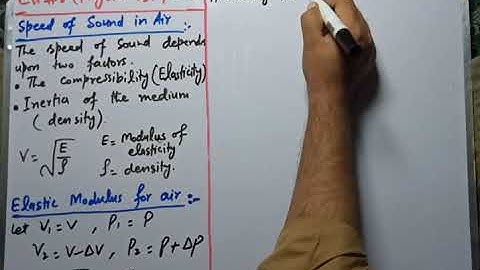 Speed of Sound in Air :-
The speed of Sound depends
upon two factors.
• The compressibility (Elasticity)
• Inertia of the medium
(density).
V = √E/ρ
E = Modulus of
elasticity
ρ = density.
Elastic Modulus for air :-
Let V₁ = V , P₁ = P
V₂ = V-ΔV , P₂ = P + ΔP